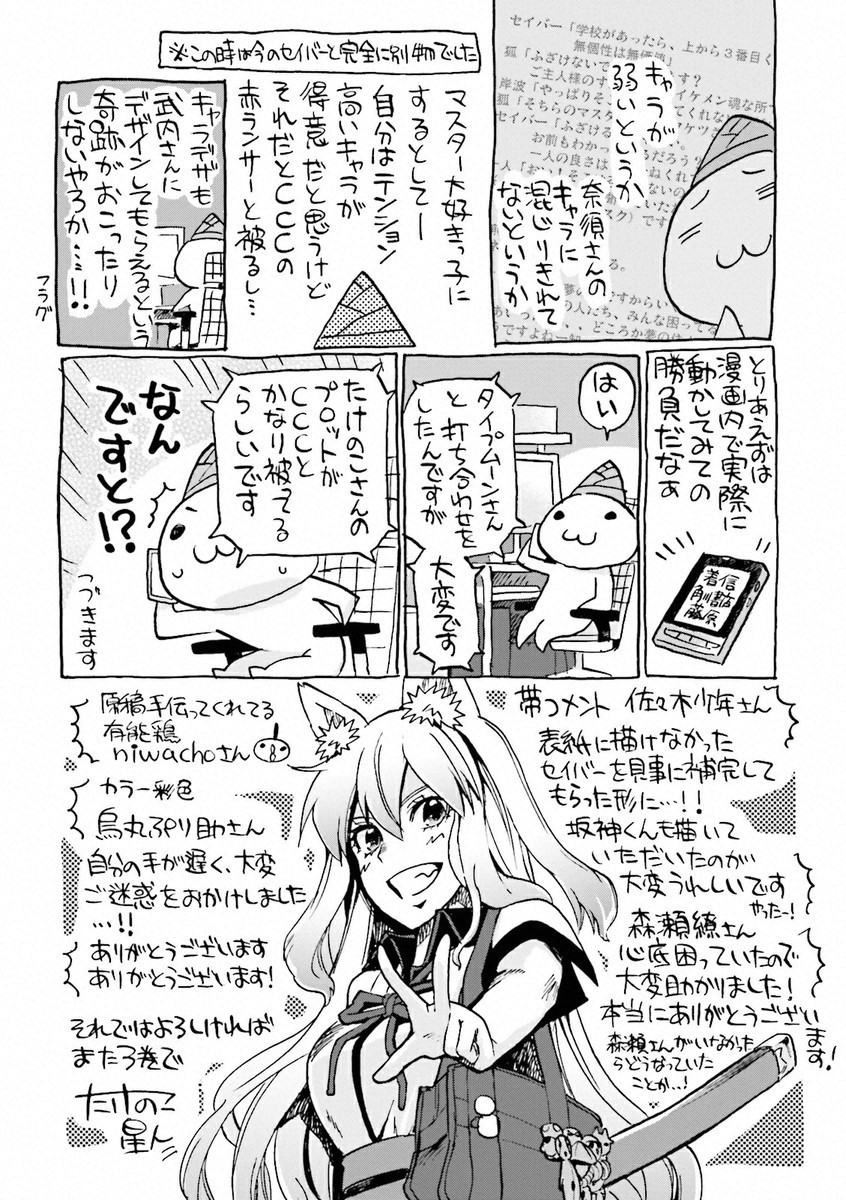 セイバー「学校があったら、上から３番目く
無個性は無価値
狐「ふざけないで
す？
ご主人様のす
イケメン魂な所
岸波「やっぱりそ
てくれな
狐「そちらのマス
ケツさ
セイバー「ふざける
お前もわかっ
だろう？
一人の良さは
ねくれ
キャラが
弱いというか
奈須さんの
キャラに
混じりきれて
ないというか
※この時は今のセイバーと完全に別物でした
マスター大好きっ子に
するとしてー
自分はテンション
高いキャラが
得意だと思うけど
それだとCCCの
赤ランサーと被るし…
キャラデザも
武内さんに
デザインしてもらえるという
奇跡がおこったり
しないやろか…!!
フラグ
とりあえずは
漫画内で実際に
動かしてみての
勝負だなぁ
着信
角川書店
藤原
はい
タイプムーンさん
と打ち合わせを
したんですが
大変です
たけのこさんの
プロットが
CCCと
かなり被ってる
らしいです
なん
ですと!?
つづきます
帯コメント 佐々木少年さん
表紙に描けなかった
セイバーを見事に補完して
もらった形に…!!
坂神くんも描いて
いただいたのが
大変うれしいです
やったー!
森瀬繚さん
心底困っていたので
大変助かりました!
本当にありがとうございます!
森瀬さんがいなかった
らどうなっていた
ことか…!
原稿手伝ってくれてる
有能鶏
niwachoさん
カラー彩色
烏丸ぷり助さん
自分の手が遅く、大変
ご迷惑をおかけしました
…!!
ありがとうございます
ありがとうございます!
それではよろしければ
また3巻で
たけのこ
星人